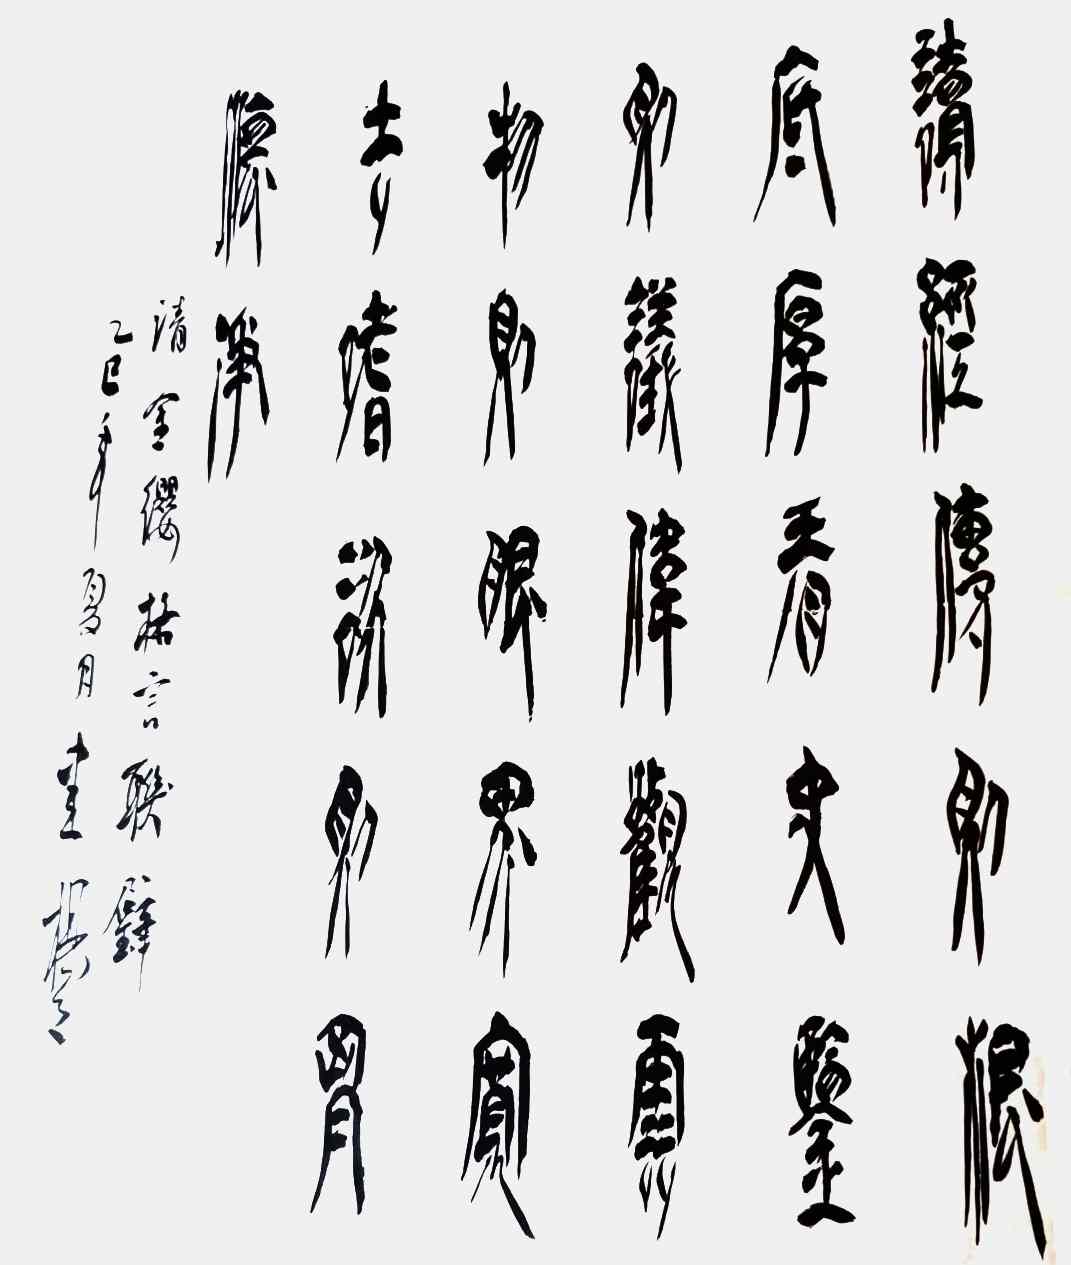 讀經傳則根
底厚看史鑒
則議偉觀雲
物則眼界寬
去嗜欲則胸
懷淨
清金纓格言聯璧
乙巳年夏月書